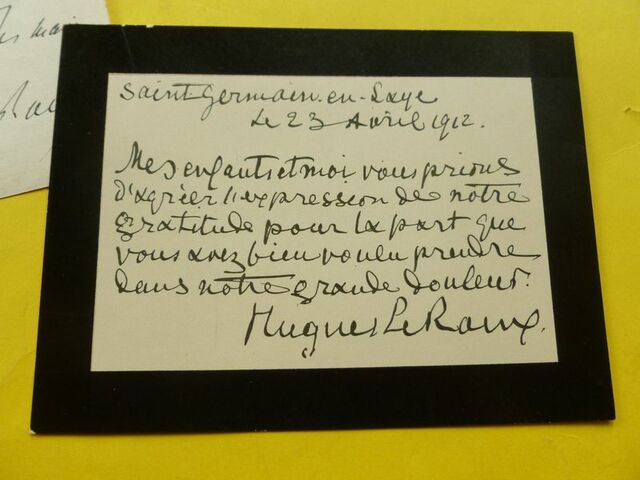 Saint-Germain-en-Laye
Le 23 Avril 1912.
Mes enfants et moi vous prions
d'agréer l'expression de notre
gratitude pour la part que
vous avez bien voulu prendre
dans notre grande douleur.
Hugues Le Roux.